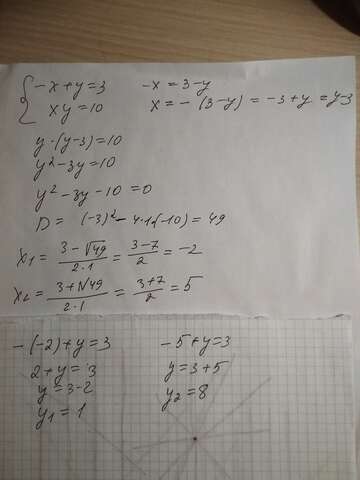 { -x+y=3    -x = 3-y
xy=10    x = - (3-y) = -3+y = y-3
y·(y-3)=10
y²-3y=10
y²-3y-10=0
D= (-3)²-4·1·(-10)=49
x₁ = (3-√49)/(2·1) = (3-7)/2 = -2
x₂ = (3+√49)/(2·1) = (3+7)/2 = 5
-(-2)+y=3    -5+y=3
2+y=3    y=3+5
y=3-2    y₂=8
y₁=1